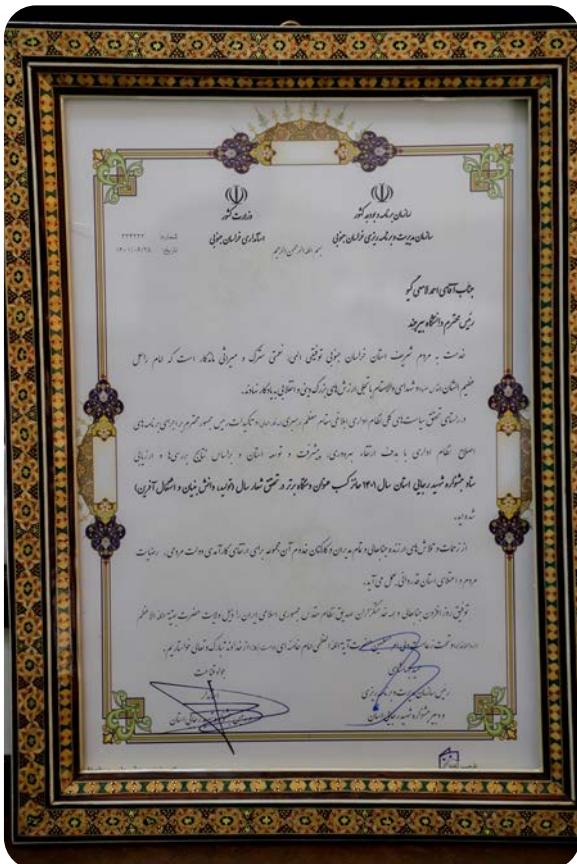 سازمان برنامه و بودجه کشور
سازمان مدیریت و برنامه ریزی خراسان جنوبی
وزارت کشور
استانداری خراسان جنوبی
شماره: ۲۳۴۲۳۲
تاریخ: ۱۴۰۱/۰۶/۲۸
بسم الله الرحمن الرحیم
جناب آقای احمد لامعی گیو
رئیس محترم دانشگاه بیرجند
خدمت به مردم شریف استان خراسان جنوبی توفیقی الهی، نعمتی مشترک و میراثی ماندگار است که امام راحل
عظیم الشان و شهدای والامقام با تجلی ارزش های بزرگ دینی و انقلابی به یادگار نهادند.
در راستای تحقق سیاست های کلی نظام اداری ابلاغی مقام معظم رهبری و تاکیدات رئیس جمهور محترم بر اجرای برنامه های
اصلاح نظام اداری با هدف ارتقاء بهره وری، پیشرفت و توسعه استان و براساس نتایج بررسی ها و ارزیابی
ستاد جشنواره شهید رجایی استان سال ۱۴۰۱ حائز کسب عنوان دستگاه برتر در تحقق شعار سال (تولید، دانش بنیان و اشتغال آفرین)
شده اید.
از زحمات و تلاش های ارزنده جنابعالی و تمام مدیران و کارکنان خدوم آن مجموعه برای ارتقای کارآمدی دولت مردمی، رضایت
مردم و اعتلای استان قدردانی بعمل می آید.
توفیق روز افزون جنابعالی و همه خدمتگزاران صدیق نظام مقدس جمهوری اسلامی ایران را ذیل ولایت حضرت بقیة الله الاعظم
و تحت زعامت حضرت آیة الله العظمی امام خامنه ای از خداوند تبارک و تعالی خواستاریم.
جواد قناعت
رئیس سازمان مدیریت و برنامه ریزی
و دبیر جشنواره شهید رجایی استان
شهید رجایی استان